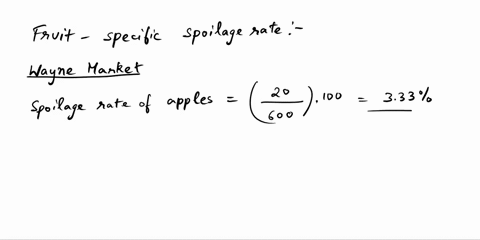 Fruit - specific spoilage rate :-
Wayne Market
Spoilage rate of apples = (20/600).100 = 3.33%